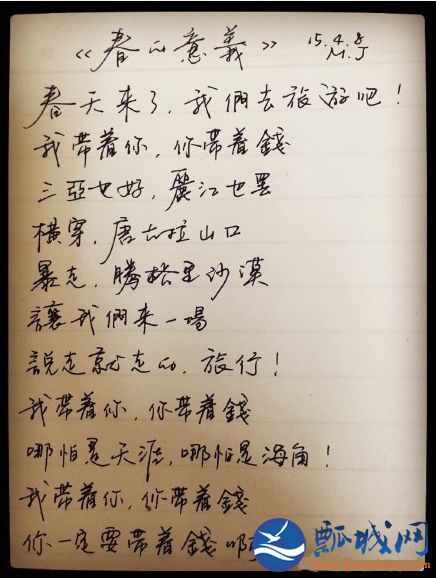 《春的意義》 15.4.8
M.J
春天来了，我們去旅游吧！
我帶着你，你帶着錢
三亞也好，麗江也罢
橫穿，唐古拉山口
暴走，騰格里沙漠
讓我們来一場
說走就走的，旅行！
我帶着你，你帶着錢
哪怕是天涯，哪怕是海角！
我帶着你，你帶着錢
你一定要帶着錢啊
瓢城网